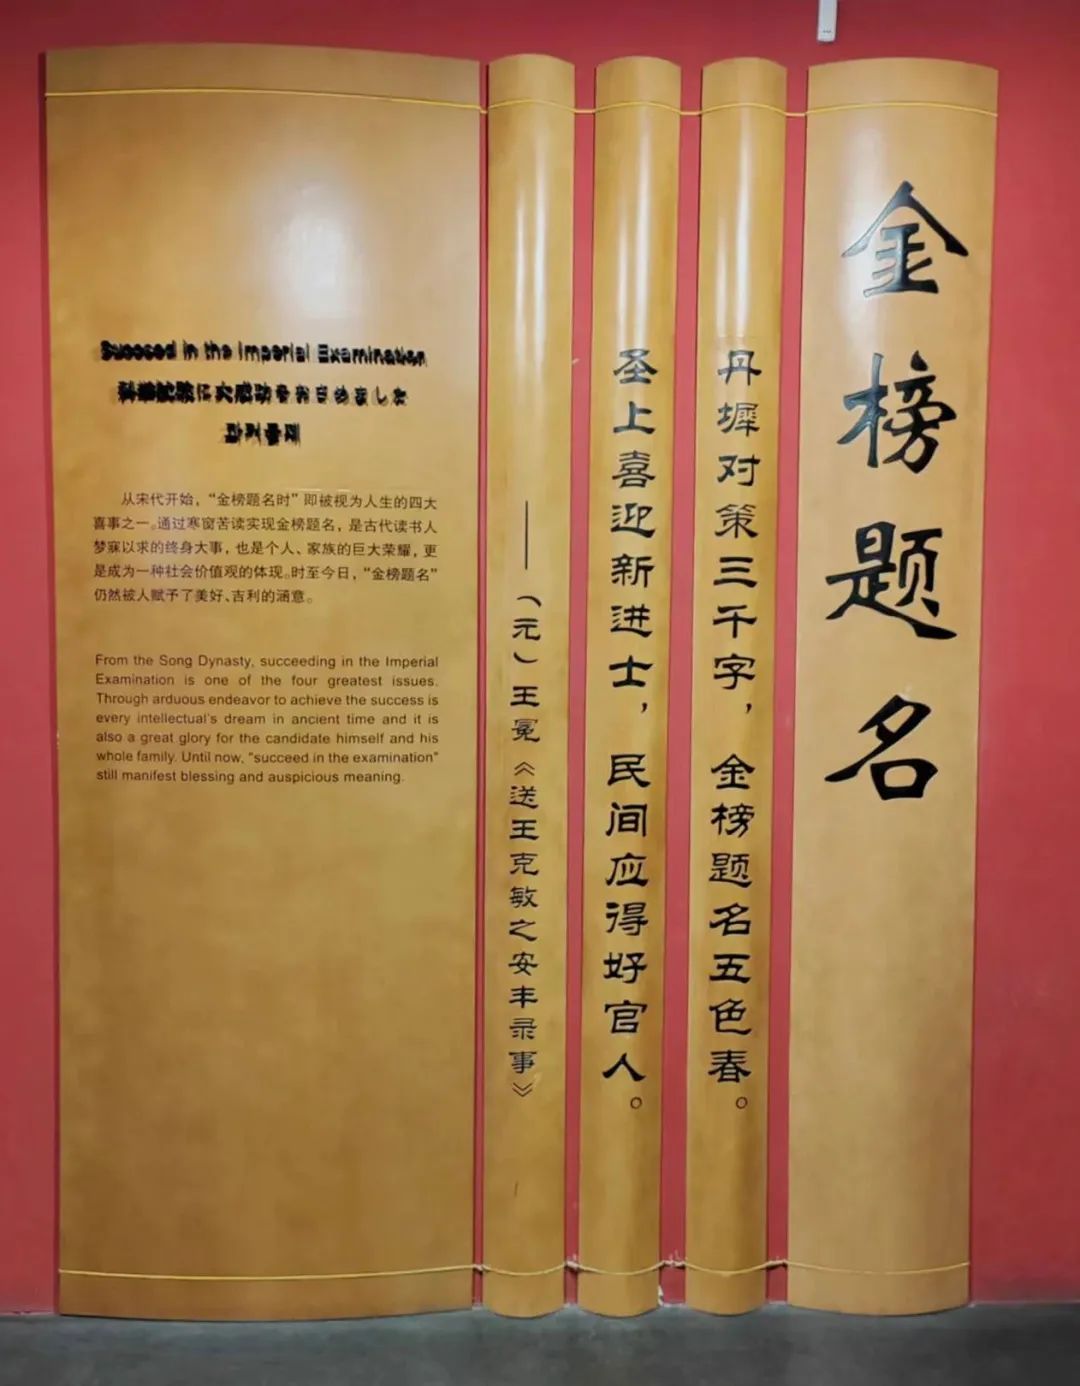 金榜题名
丹墀对策三千字，金榜题名五色春。
圣上喜迎新进士，民间应得好官人。
——（元）王冕《送王克敏之安丰录事》
Succeed in the Imperial Examination
科挙試験に大成功をおさめました
과거급제
从宋代开始，“金榜题名时”即被视为人生的四大
喜事之一。通过寒窗苦读实现金榜题名，是古代读书人
梦寐以求的终身大事，也是个人、家族的巨大荣耀，更
是成为一种社会价值观的体现。时至今日，“金榜题名”
仍然被人赋予了美好、吉利的涵意。
From the Song Dynasty, succeeding in the Imperial
Examination is one of the four greatest issues.
Through arduous endeavor to achieve the success is
every intellectual's dream in ancient time and it is
also a great glory for the candidate himself and his
whole family. Until now, "succeed in the examination"
still manifest blessing and auspicious meaning.